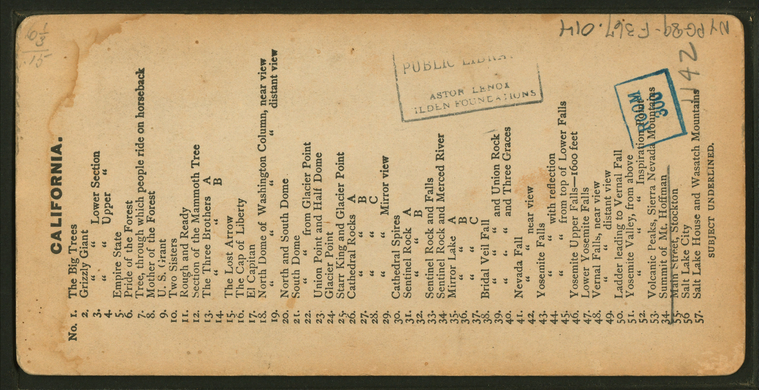 CALIFORNIA.
No. 1. The Big Trees
2. Grizzly Giant
3. " Lower Section
4. " Upper "
5. Empire State
6. Pride of the Forest
7. Tree, through which people ride on horseback
8. Mother of the Forest
9. U. S. Grant
10. Two Sisters
11. Rough and Ready
12. Section of the Mammoth Tree
13. The Three Brothers A
14. " " " B
15. The Lost Arrow
16. The Cap of Liberty
17. El Capitan
18. North Dome of Washington Column, near view
19. " " " " distant view
20. North and South Dome
21. South Dome
22. " " from Glacier Point
23. Union Point and Half Dome
24. Glacier Point
25. Starr King and Glacier Point
26. Cathedral Rocks A
27. " " B
28. " " C
29. " " Mirror view
30. Cathedral Spires
31. Sentinel Rock A
32. " " B
33. Sentinel Rock and Falls
34. Sentinel Rock and Merced River
35. Mirror Lake A
36. " " B
37. " " C
38. Bridal Veil Fall
39. " " " and Union Rock
40. " " " and Three Graces
41. Nevada Fall
42. " " near view
43. Yosemite Falls
44. " " with reflection
45. " " from top of Lower Falls
46. Yosemite Upper Falls—1600 feet
47. Lower Yosemite Falls
48. Vernal Falls, near view
49. " " distant view
50. Ladder leading to Vernal Fall
51. Yosemite Valley, from above
52. " " " Inspiration
53. Volcanic Peaks, Sierra Nevada Mountains
54. Summit of Mt. Hoffman
55. Main Street, Stockton
56. Salt Lake City
57. Salt Lake House and Wasatch Mountains
SUBJECT UNDERLINED.
PUBLIC LIBRA
ASTOR LENOX
ILDEN FOUNDATIONS
ROOM
300
142
NYPG89-F367.014